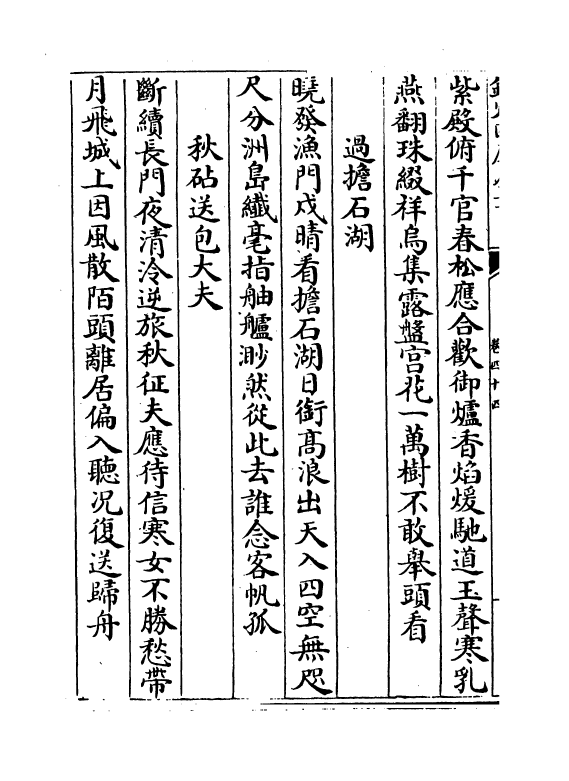 紫殿俯千官春松應合歡御爐香焰煖馳道玉聲寒乳
燕翻珠綴祥烏集露盤宫花一萬樹不敢舉頭看
過擔石湖
曉發漁門戍晴看擔石湖日銜髙浪出天入四空無咫
尺分洲島纖毫指舳艫渺然從此去誰念客帆孤
秋砧送包大夫
斷續長門夜清泠逆旅秋征夫應待信寒女不勝愁帶
月飛城上因風散陌頭離居偏入聽况復送歸舟
卷四十四